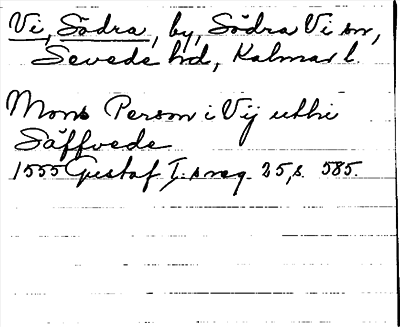 Vi, Södra, by, Södra Vi sn,
Sevede hd, Kalmar l.
Mons Person i Vij uthi
Säffvede
1555 Gustaf I:s reg. 25, s. 585.